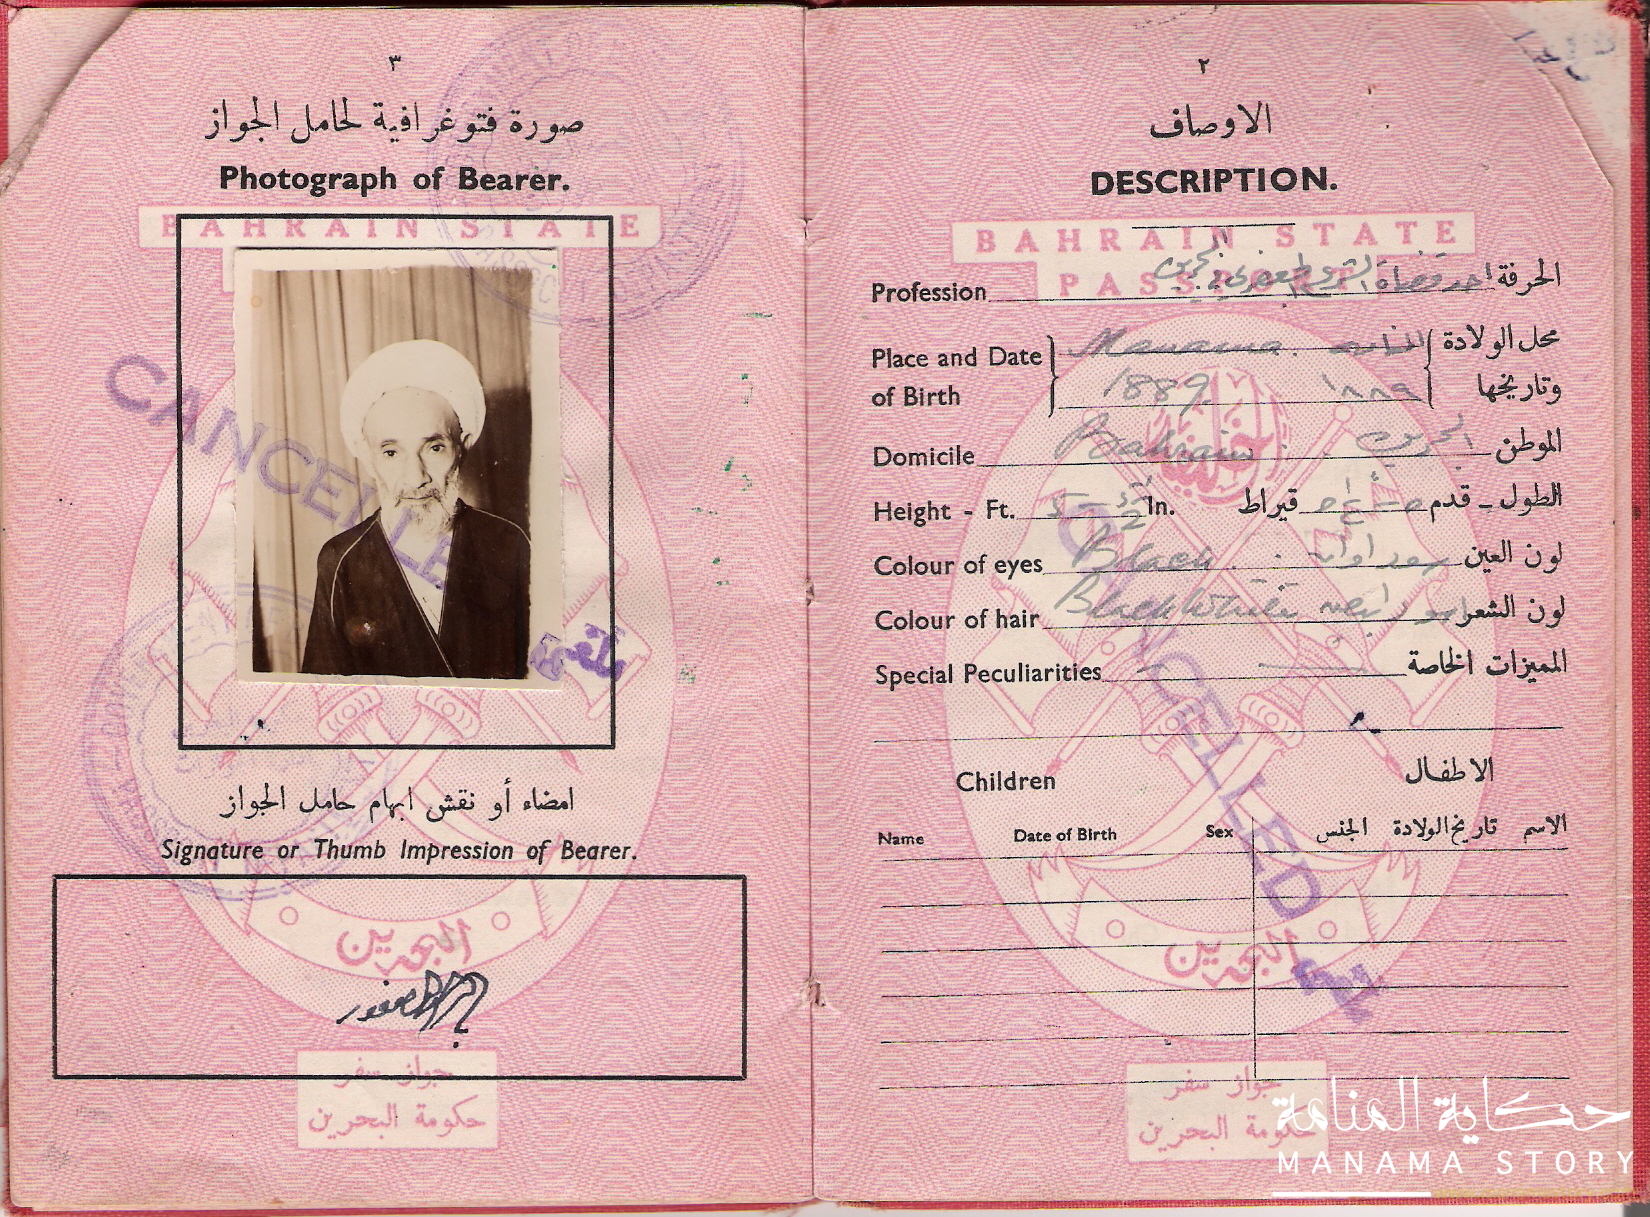 ٣
صورة فتوغرافية لحامل الجواز
Photograph of Bearer.
BAHRAIN STATE
CANCELLED
امضاء أو نقش ابهام حامل الجواز
Signature or Thumb Impression of Bearer.
البحرين
جواز سفر
حكومة البحرين
٢
الاوصاف
DESCRIPTION.
BAHRAIN STATE
PASSPORT
Profession الحرفة احد قضاة الشرع
Place and Date محل الولادة
Manama. المنامه
of Birth وتاريخها
1889. ١٨٨٩
Domicile Bahrain. البحرين الموطن
Height - Ft. 5 - In. قيراط قدم الطول -
Colour of eyes Black. لون العين
Colour of hair Black White لون الشعر
Special Peculiarities المميزات الخاصة
CANCELLED
Children الاطفال
Name Date of Birth Sex الجنس تاريخ الولادة الاسم
البحرين
جواز سفر
حكومة البحرين
حكاية المنامة
MANAMA STORY